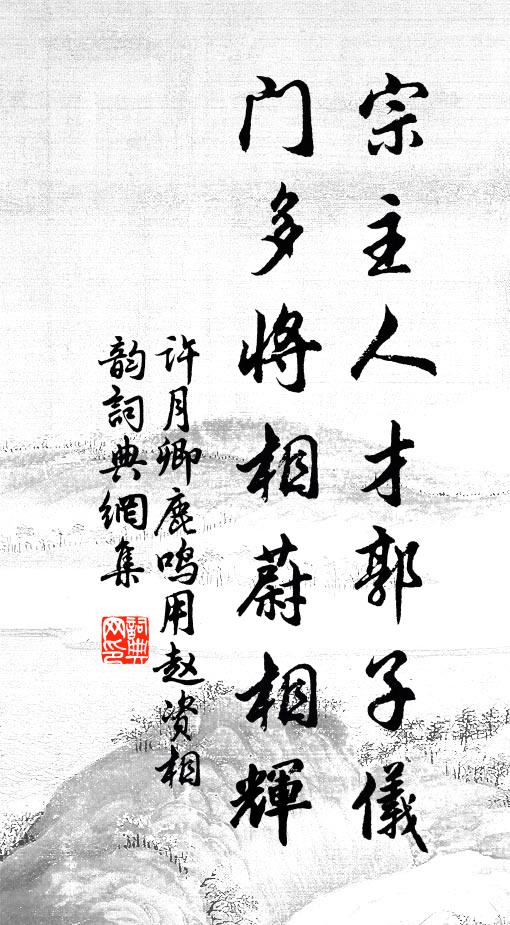 宗主人才郭子儀
门多将相蔚相輝
许月卿鹿鸣用赵资相
韵詞典網集
詞典网印